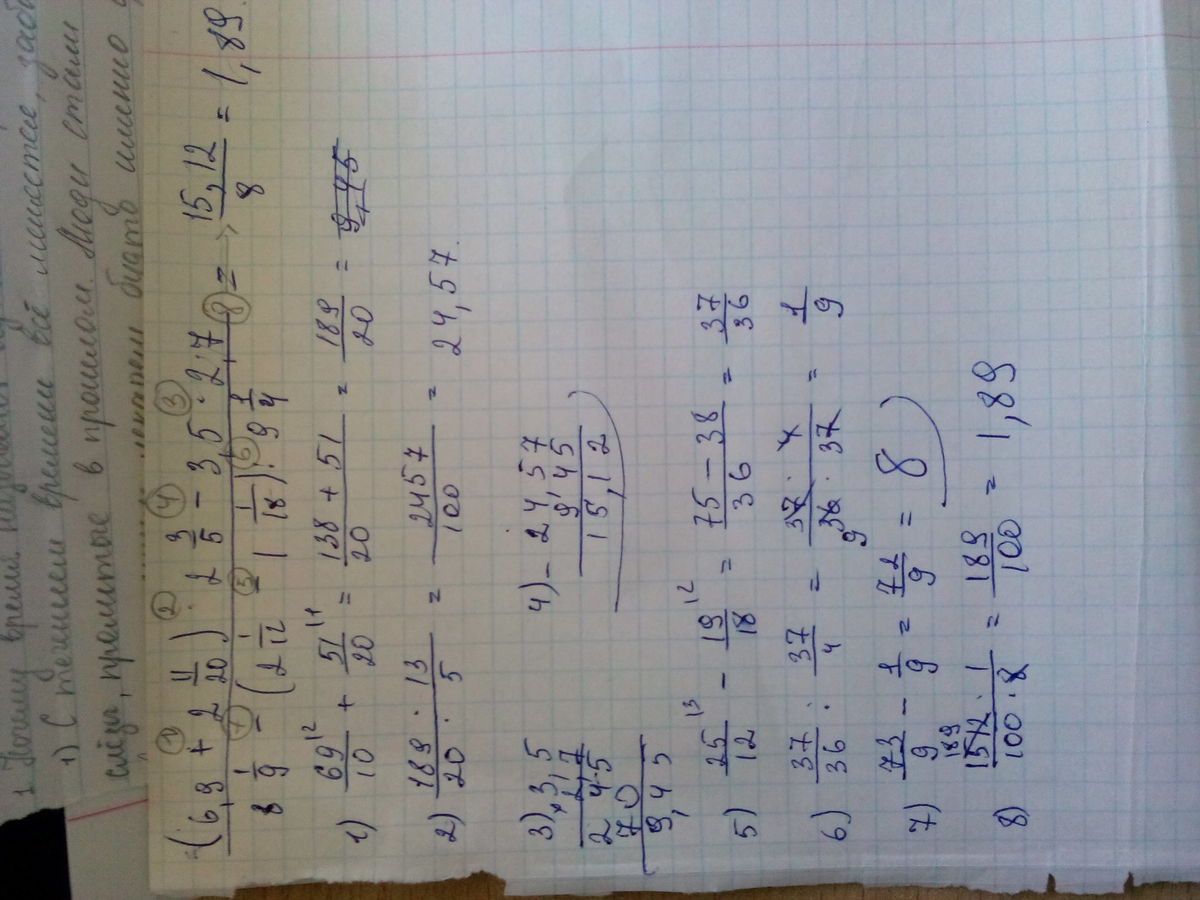 1. Почему время
1) С течением времени всё
в прошлом. Люди стали
слёзы, прошлое
именно
(6,9 + 2 11/20) · 2 3/5 − 3,5 · 2,7
8 1/9 − (2 1/12 − 1 1/18) : 9 1/4
= 15,12/8 = 1,89.
1) 69/10 + 51/20 = 138 + 51/20 = 189/20 = 9,45
2) 189 · 13/20 · 5 = 2457/100 = 24,57.
3) 3,5
2,7
2 4 5
7 0
9,45
4) − 24,57
9,45
15,12
5) 25/12 − 19/18 = 75 − 38/36 = 37/36
6) 37/36 : 37/4 = 37 · 4/36 · 37 = 1/9
9
7) 73/9 − 1/9 = 72/9 = 8
189
8) 1512 · 1/100 · 8 = 189/100 = 1,89